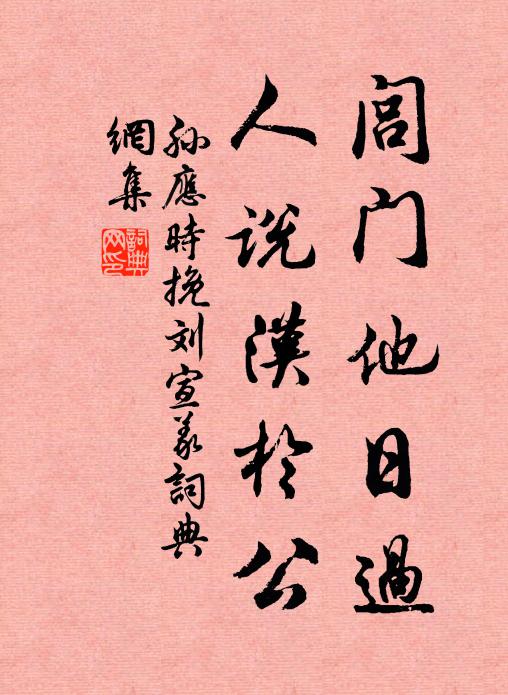 闾门他日過
人说漢於公
孙應時挽刘宣義詞典
網集
詞典
网印